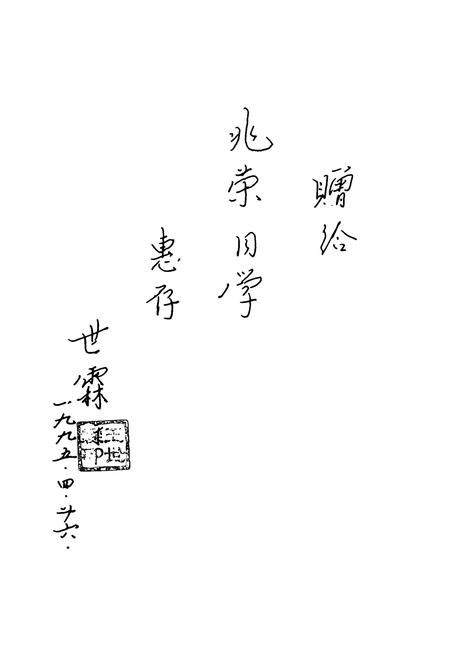 赠给
兆荣同学
惠存
世霖
一九九五.四.廿六.